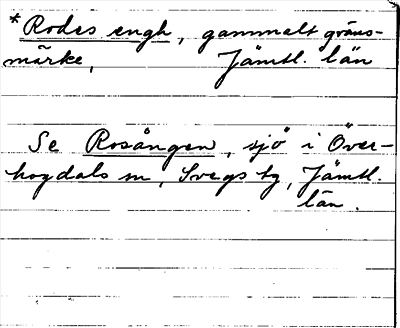 *Rodes engh, gammalt gräns-
märke, Jämtl. län
Se Rosången, sjö i Över-
hogdals sn, Svegs tg, Jämtl.
län.